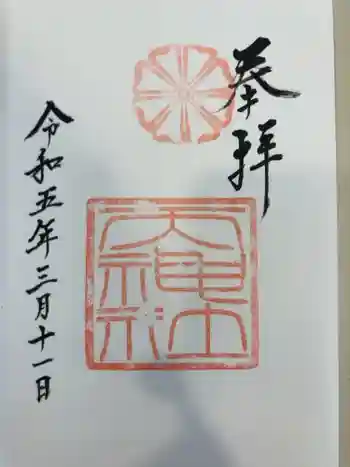 奉拝
令和五年三月十一日